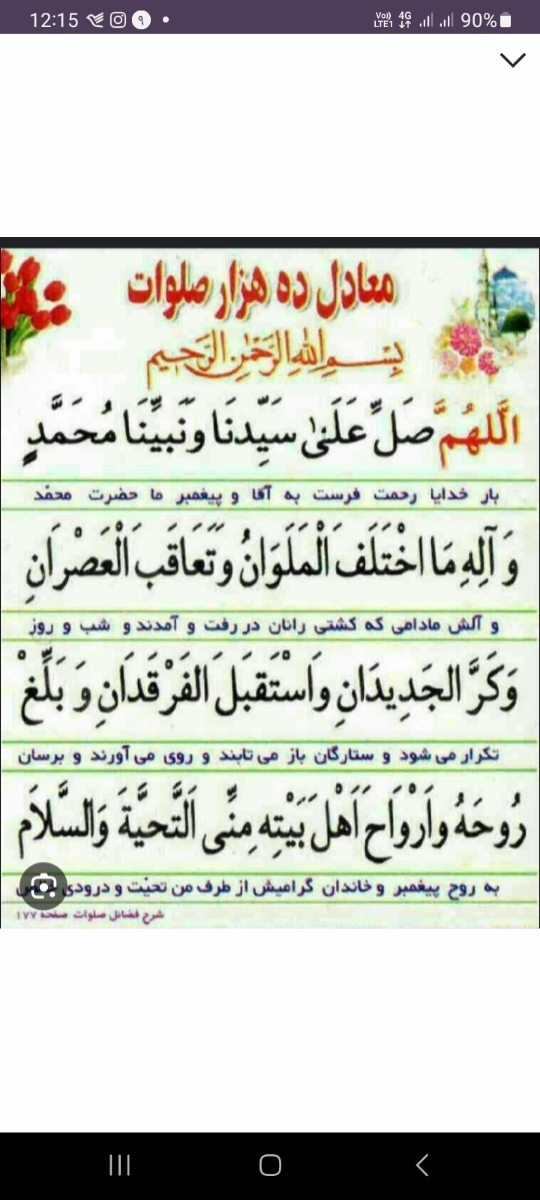 12:15
۹
Vo)) LTE1 4G 90%
معادل ده هزار صلوات
بِسْمِ اللهِ الرَّحْمٰنِ الرَّحِيمِ
اَللّٰهُمَّ صَلِّ عَلَىٰ سَيِّدِنَا وَنَبِيِّنَا مُحَمَّدٍ
بار خدایا رحمت فرست به آقا و پیغمبر ما حضرت محمّد
وَ آلِهِ مَا اخْتَلَفَ الْمَلَوَانُ وَتَعَاقَبَ الْعَصْرَانِ
و آلش مادامی که کشتی رانان در رفت و آمدند و شب و روز
وَكَرَّ الجَدِيدَانِ وَاسْتَقبَلَ الفَرْقَدَانِ وَ بَلِّغْ
تکرار می شود و ستارگان باز می تابند و روی می آورند و برسان
رُوحَهُ وَاَرْوَاحَ اَهْلِ بَيْتِهِ مِنِّى اَلتَّحيَّةَ وَالسَّلاَم
به روح پیغمبر و خاندان گرامیش از طرف من تحیّت و درودی
شرح فضائل صلوات صفحه ۱۷۷